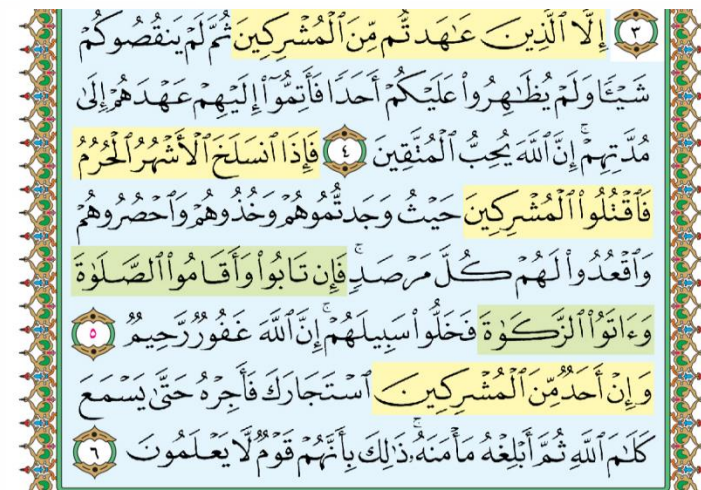 ٣ إِلَّا ٱلَّذِينَ عَـٰهَدتُّم مِّنَ ٱلْمُشْرِكِينَ ثُمَّ لَمْ يَنقُصُوكُمْ
شَيْـًٔا وَلَمْ يُظَـٰهِرُوا۟ عَلَيْكُمْ أَحَدًا فَأَتِمُّوٓا۟ إِلَيْهِمْ عَهْدَهُمْ إِلَىٰ
مُدَّتِهِمْ ۚ إِنَّ ٱللَّهَ يُحِبُّ ٱلْمُتَّقِينَ ٤ فَإِذَا ٱنسَلَخَ ٱلْأَشْهُرُ ٱلْحُرُمُ
فَٱقْتُلُوا۟ ٱلْمُشْرِكِينَ حَيْثُ وَجَدتُّمُوهُمْ وَخُذُوهُمْ وَٱحْصُرُوهُمْ
وَٱقْعُدُوا۟ لَهُمْ كُلَّ مَرْصَدٍ ۚ فَإِن تَابُوا۟ وَأَقَامُوا۟ ٱلصَّلَوٰةَ
وَءَاتَوُا۟ ٱلزَّكَوٰةَ فَخَلُّوا۟ سَبِيلَهُمْ ۚ إِنَّ ٱللَّهَ غَفُورٌ رَّحِيمٌ ٥
وَإِنْ أَحَدٌ مِّنَ ٱلْمُشْرِكِينَ ٱسْتَجَارَكَ فَأَجِرْهُ حَتَّىٰ يَسْمَعَ
كَلَـٰمَ ٱللَّهِ ثُمَّ أَبْلِغْهُ مَأْمَنَهُۥ ۚ ذَٰلِكَ بِأَنَّهُمْ قَوْمٌ لَّا يَعْلَمُونَ ٦